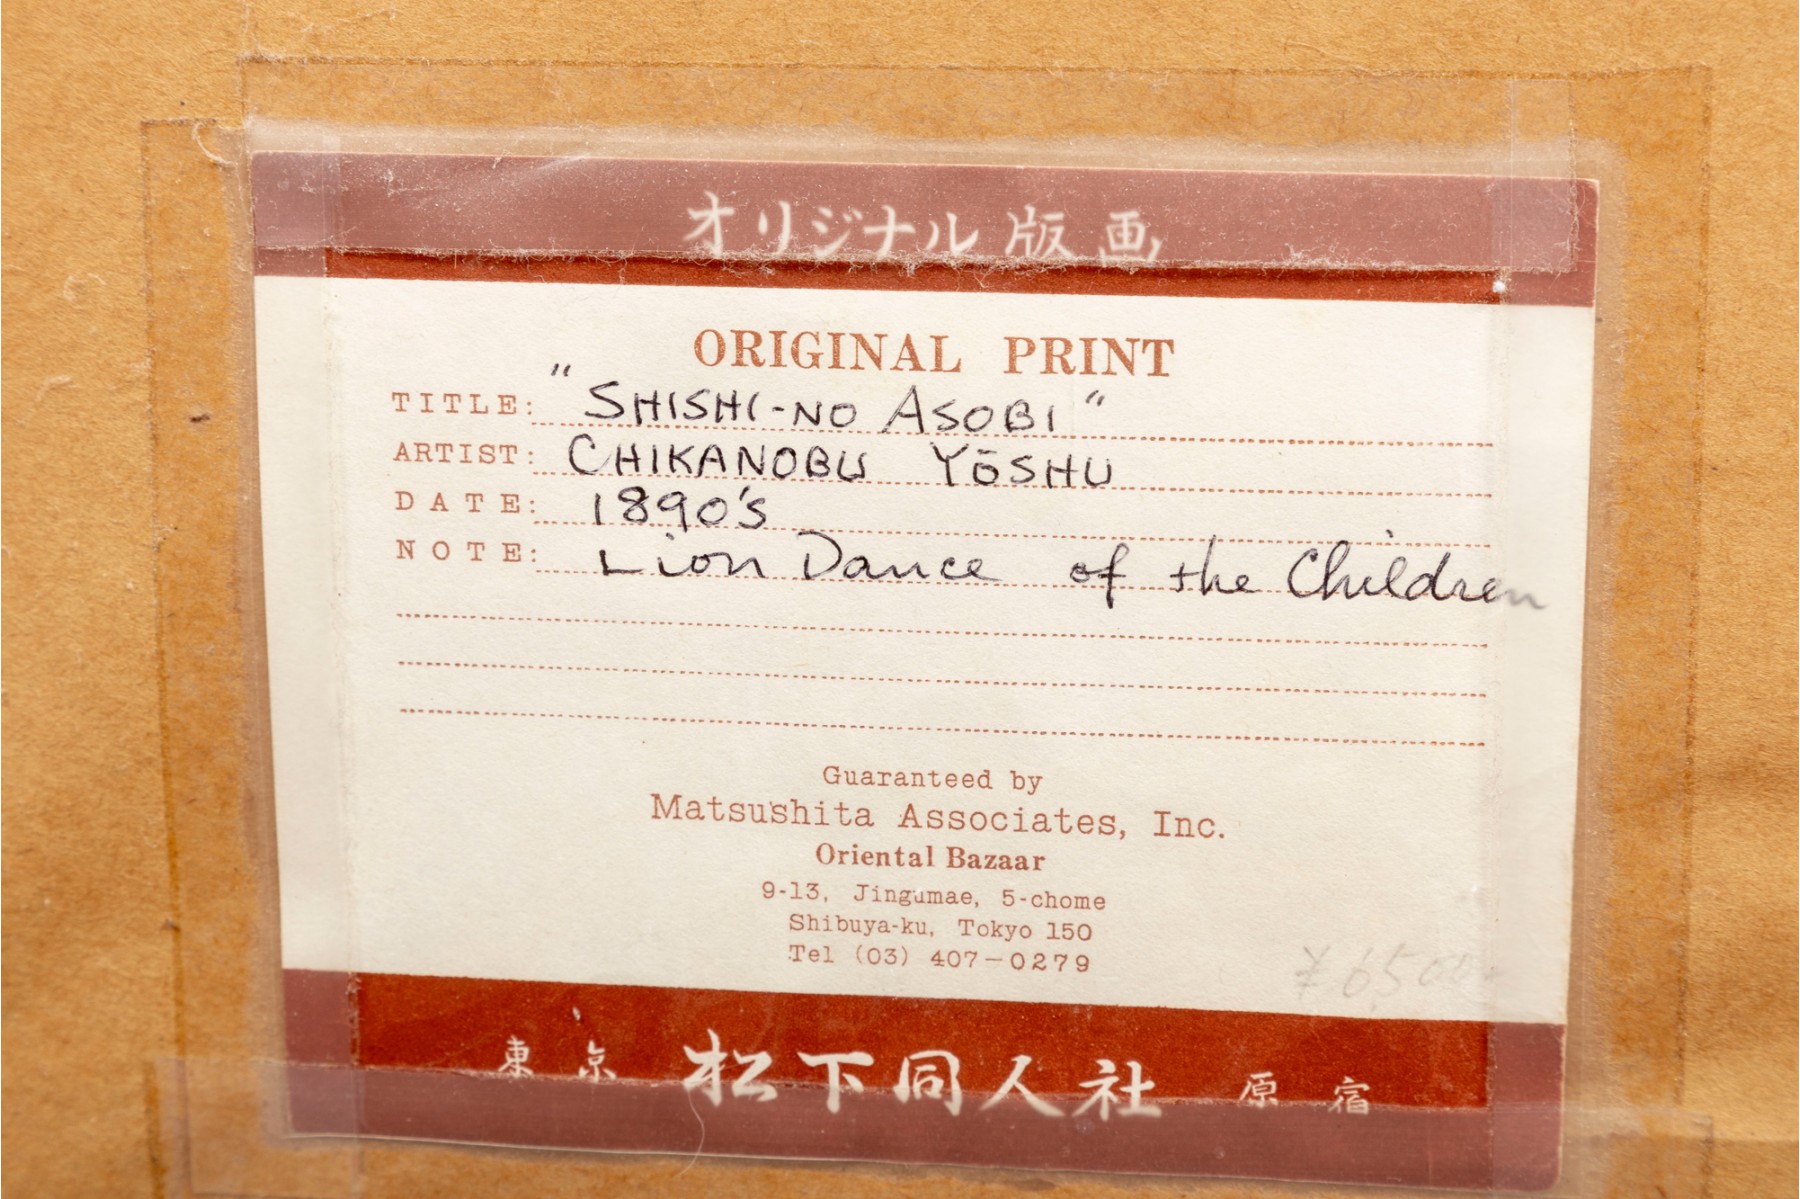 オリジナル版画
ORIGINAL PRINT
TITLE: "SHISHI-NO ASOBI"
ARTIST: CHIKANOBU YŌSHU
DATE: 1890's
NOTE: Lion Dance of the Children
Guaranteed by
Matsushita Associates, Inc.
Oriental Bazaar
9-13, Jingumae, 5-chome
Shibuya-ku, Tokyo 150
Tel (03) 407-0279
東京 松下同人社 原宿